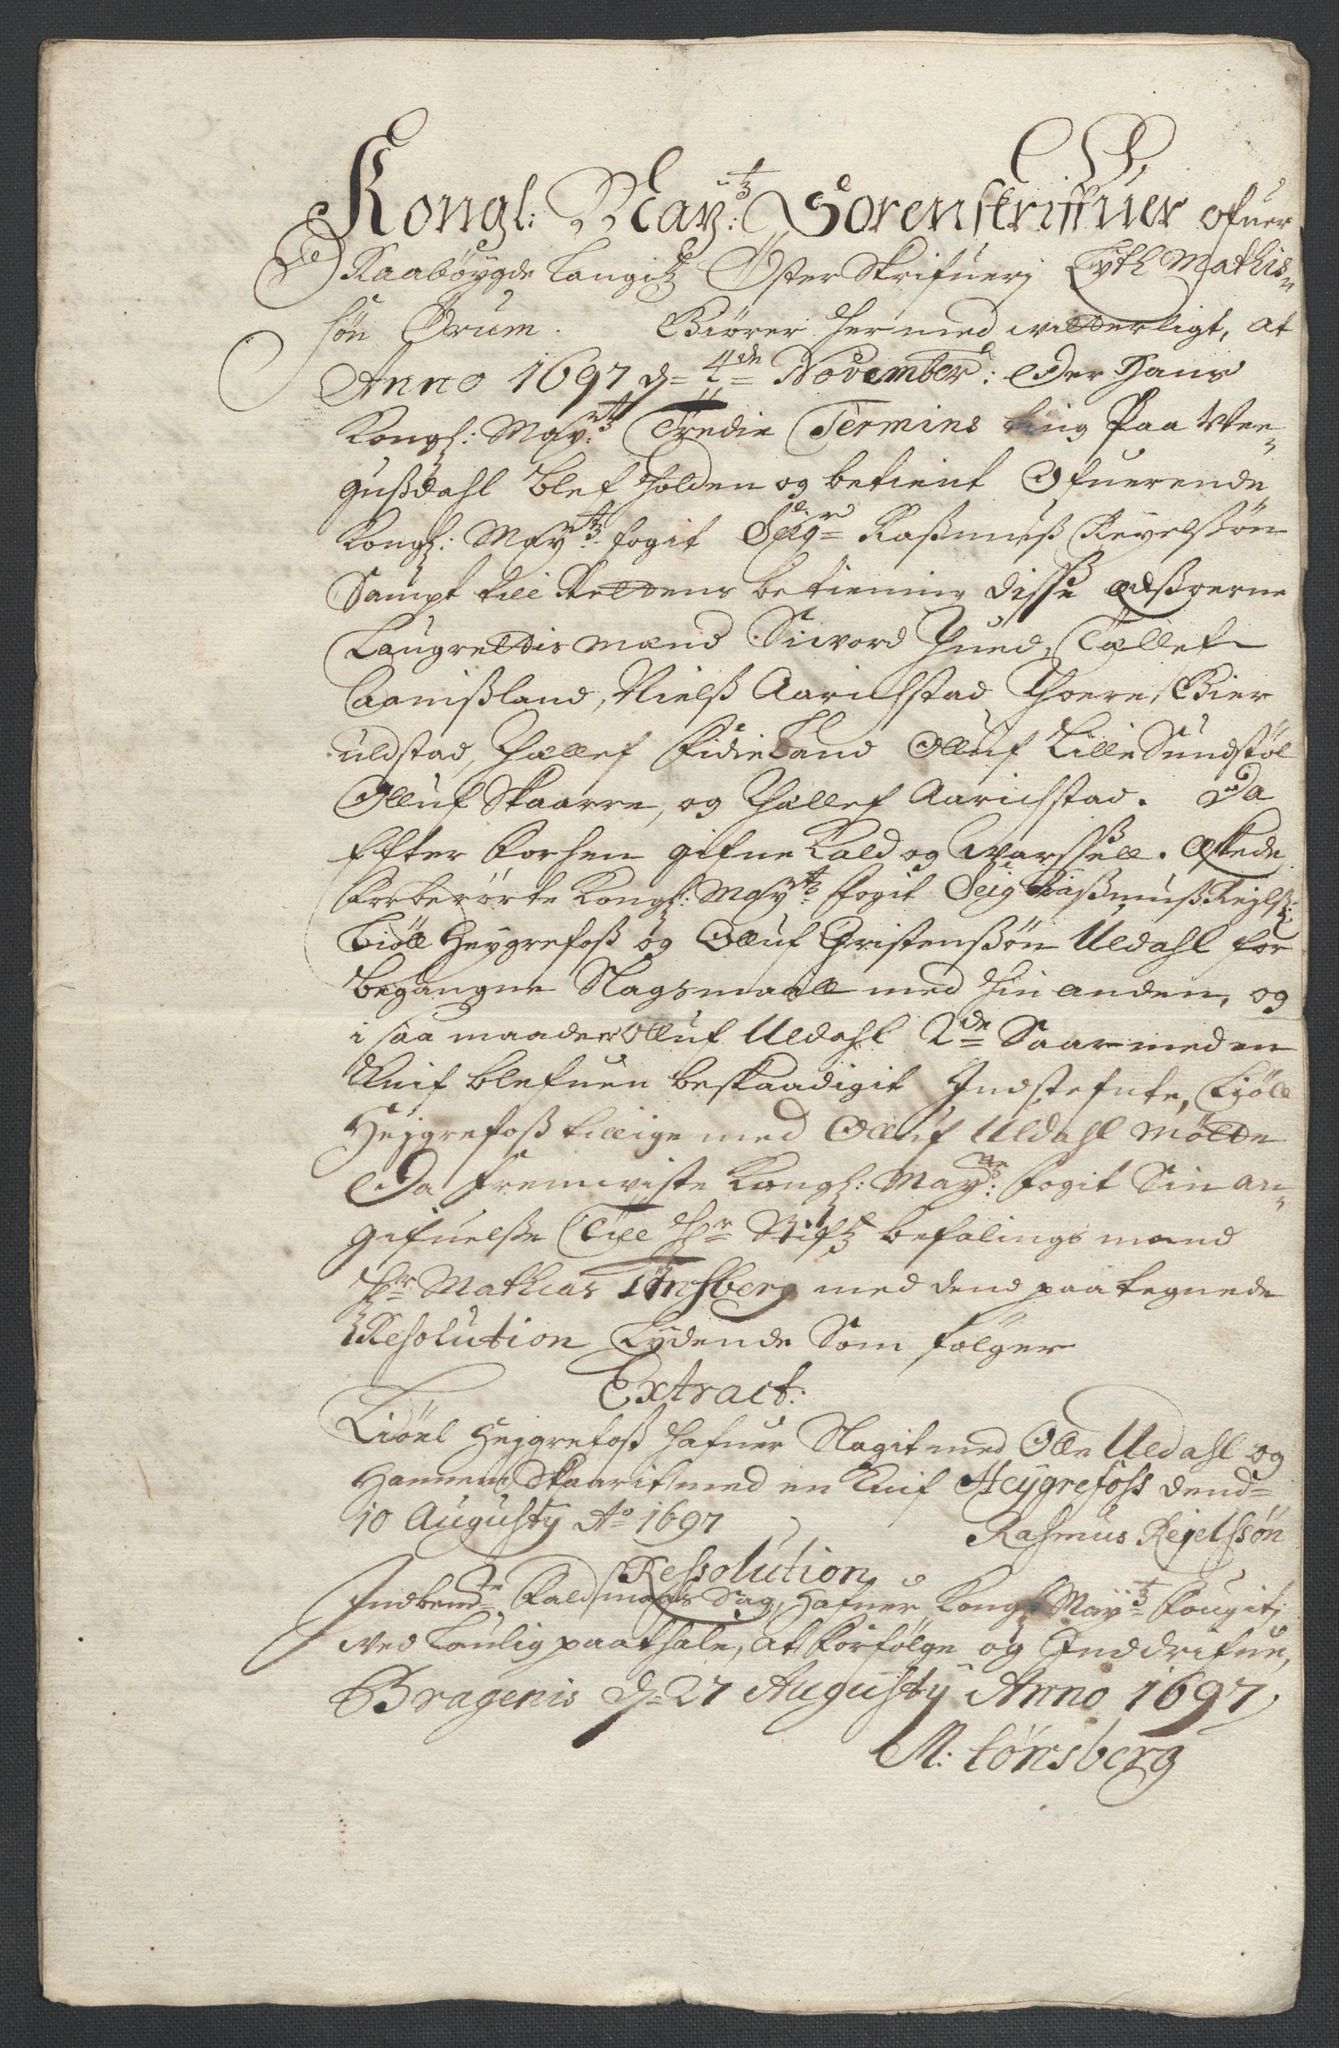 Kongl: May:tz Sorenskriffuer ofuer
Raabøygde Laugitz Øster Skrifueri Tyth Mathis-
søn Ørum. Giører her med vitterligt, at
Anno 1697 d= 4de November: Der Hans
Kongl: May:tz Tredie Termins ting Paa Ve-
gußdahl blef holden og betient Ofuerende
Kongl: May:tz fogit Seigr Raßmuß Kieelßøn
Sampt till Rettens betienning disse edßorne
Laugrettis mænd Siword Hued, Tallef
Aanißland, Nielß Aarichstad, Thore Bier
uldstad, Tallef Fidieland Olluf Lille Sundstøl
Olluf Skaarre, og Tallef Aarichstad. Da
Efter forhen gifne Kald og warßell. Æskede
forberørte Kongl: May:tz fogit Seigr Raßmuß Kiejlß:
Liøll Heygrefoß og Olluf Christenßøn Uldahl for
begangne Slagsmaall med hin anden, og
i saa maader Olluf Uldahl 2de Saar med en
Knif blefuen beskaadigit Indstefnte, Liøll
Hejgrefoß tillige med Olluf Uldahl møtte
Da fremviste Kongl: May:tz fogit Sin an-
gifuelße Till Hr Stiftz befalings mand
Hr Mathias Tønsberg med dend paategnede
Resolution Lydende Som følger
Extract:
Liøel Hejgrefoß hafuer Slagit med Olle Uldahl og
Hannem Skaarit med en Knif Heygrefoss dend=
10 Augusty Ao 1697 Rasmus Kejelssøn
Ressolution
Indbem:te Faldsmaals Sag, Hafuer Kongl May:tz fougit
ved Laulig paathale, at forfølge og Inddrifue,
Bragenis d= 27 Augusty Anno 1697
M: Tønsberg